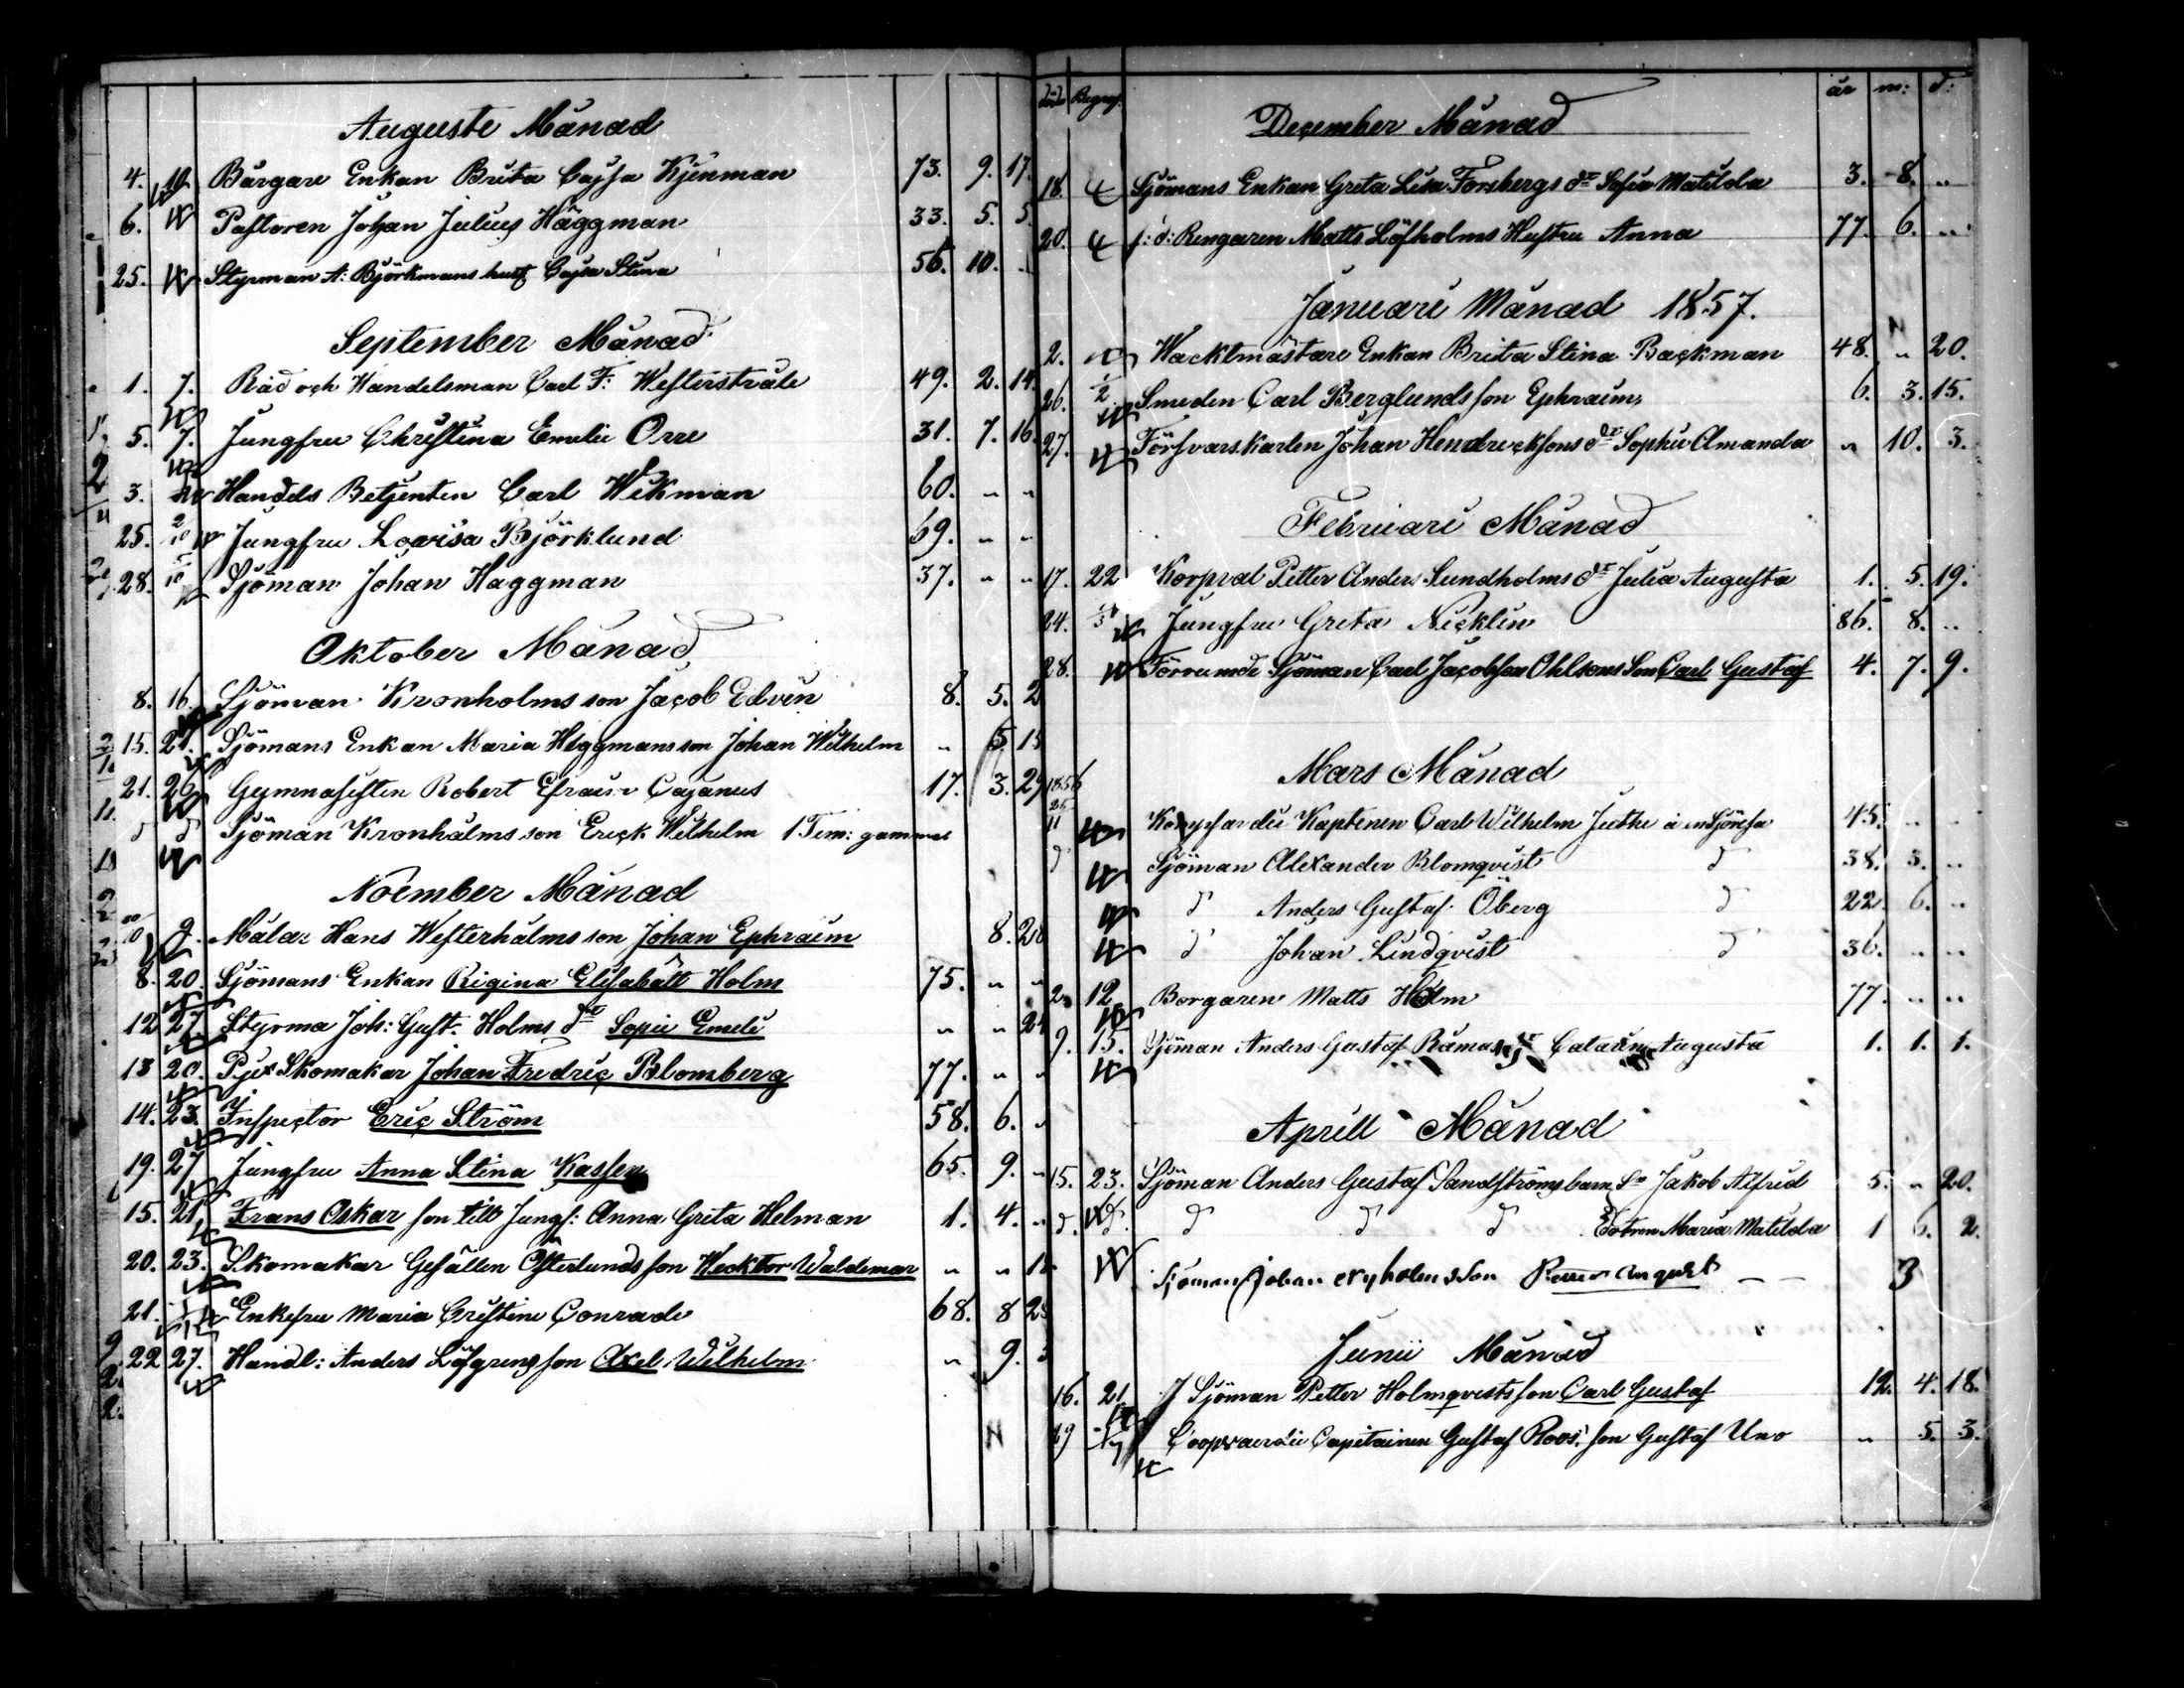 Auguste Månad
4. 10. Bårgare Enkan Brita Cajsa Kjenman 73. 9. 17.
6. Pastoren Johan Julius Häggman 33. 5. 5.
25. Styrman A: Björkmans hust Cajsa Stina 56. 10. „
September Månad
1. 7. Råd och Handelsman Carl F: Westerstråle 49. 2. 14.
5. 7. Jungfru Christina Emelie Orre 31. 7. 16.
3. Handels Betjenten Carl Wikman 60. „ „
25. 2/10 Jungfru Lovisa Björklund 69. „ „
28. 5/10 Sjöman Johan Haggman 37. „ „
Oktober Månad
8. 16. Sjöman Kronholms son Jacob Edvin 8. 5. 2
15. 21. Sjömans Enkan Maria Häggmans son Johan Wilhelm „ 5 15
21. 26. Gymnasisten Robert Efraim Cajanus 17. 3. 29
d d Sjöman Kronhälms son Erick Wilhelm 1 Tim: gammal
Noember Månad
9. Målar Hans Westerhälms son Johan Ephraim 8. 20
8. 20. Sjömans Enkan Rigina Elisabätt Holm 75. „ „
12 27. Styrma Joh: Gust. Holms dtr Sopie Emeli „ „ 24
13 20. Pjex Skomakar Johan Fredric Blomberg 77. „ „
14. 23. Inspector Eric Ström 58. 6. „
19. 27 Jungfru Anna Stina Kassen 65. 9. „
15. 21. Frans Oskar son till Jungf: Anna Greta Helman 1. 4. „
20. 23. Skomakar Gesällen Österlunds son Wecktor Waldemar „ „ 18
21. Enkefru Maria Cristine Conradi 68. 8 28
22 27. Handl: Anders Löfgrens son Axel Wilhelm „ 9. 3
döde Begraf. år m: d:
December Månad
18. Sjömans Enkan Greta Lisa Forsbergs dr Sofia Matilda 3. 8. „
20. f: d: Rengaren Matts Löfholms Hustru Anna 77. 6. „
Januari Månad 1857.
2. Wacktmästare Enkan Brita Stina Backman 48. „ 20.
26. Smeden Carl Berglunds son Ephraim, 6. 3. 15.
27. Försvarskarlen Johan Hendricksons dr Sophie Amanda „ 10. 3.
Februari Månad
17. 22 Korpral Petter Anders Sundholms dr Julia Augusta 1. 5. 19.
24. Jungfru Greta Nicklin 86. 8. „
28. Förrumde Sjöman Carl Jacobson Ohlsons Son Carl Gustaf 4. 7. 9.
Mars Månad
1856
Kompfardie Kaptenen Carl Wilhelm Juthe å en Sjöresa 45. „ „
d Sjöman Alexander Blomqvist d 38. 3. „
d Anders Gustaf Öberg d 22. 6. „
d Johan Lindqvist d 36. „ „
2. 12 Borgaren Matts Holm 77. „ „
9. 15. Sjöman Anders Gustaf Råmas dr Catarina Augusta 1. 1. 1.
Aprill Månad
15. 23. Sjöman Anders Gustaf Sandströms barn Son Jakob Alfred 5. „ 20.
d. d. d d d Dotren Maria Matilda 1 6. 2.
Sjöman Johan Nyholms Son Petter August — — 3
Junii Månad
16. 21 Sjöman Petter Holmqvists son Carl Gustaf 12. 4. 18.
29 Coopvaerdie Capitainen Gustaf Roos' son Gustaf Uno „ 5. 3.